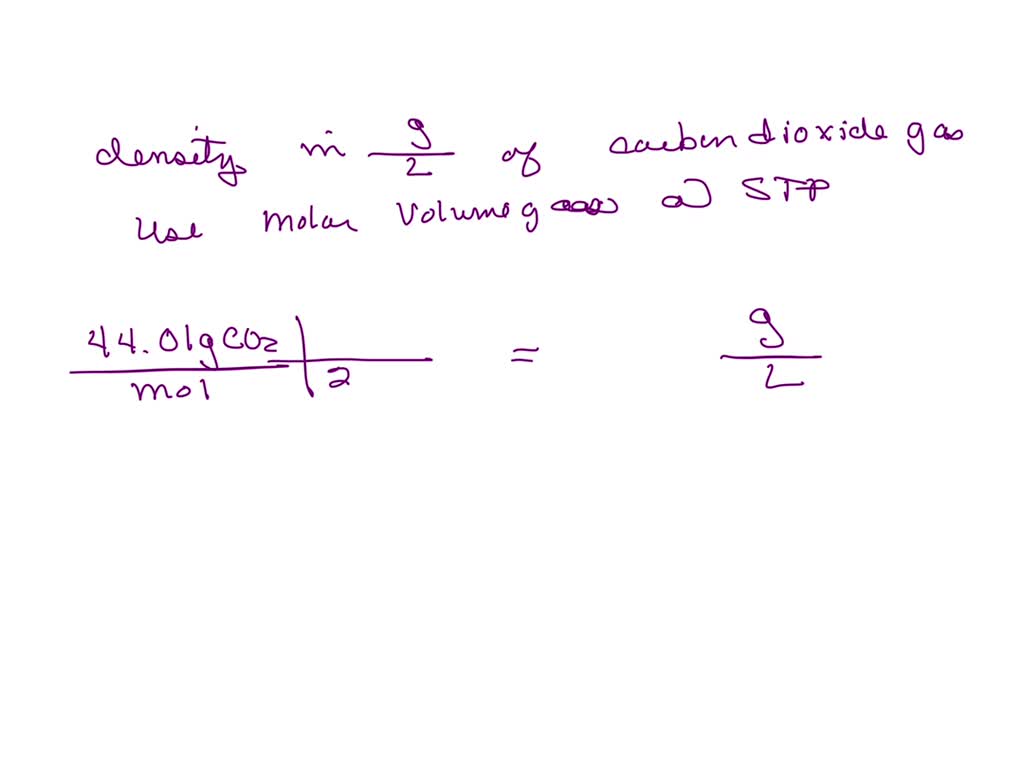 density in g/L of carbon dioxide gas
Use molar volume gas @ STP
44.01 g CO2 / mol | 2 = g/L